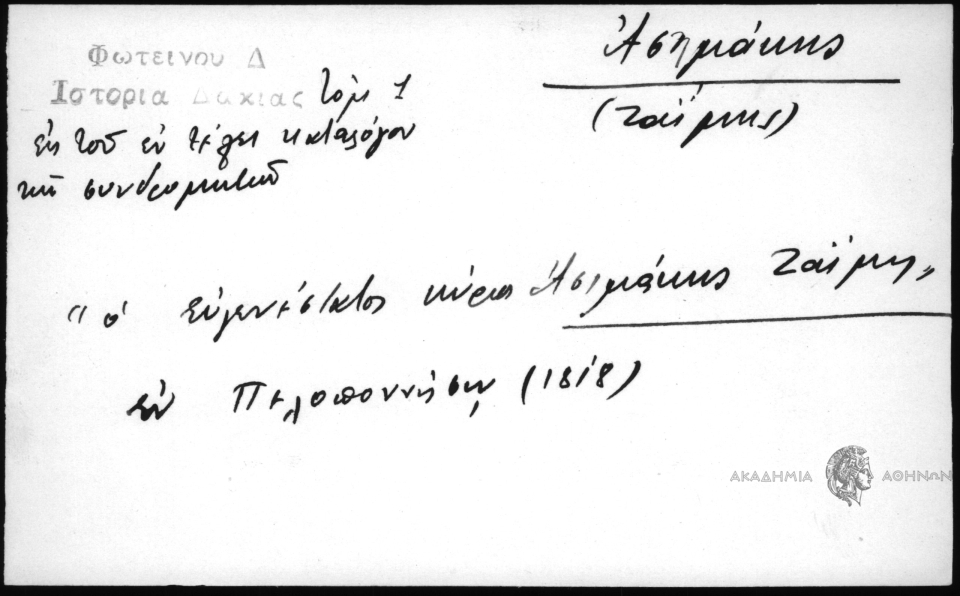 Φωτεινου Δ
Ιστορια Δακιας τόμ 1
εκ του εν τέλει καταλόγου
των συνδρομητών
Ἀσημάκης
(Ζαΐμης)
"ὁ εὐγενέστατος κύριος Ἀσιμάκης Ζαΐμης"
ἐν Πελοποννήσῳ (1818)
ΑΚΑΔΗΜΙΑ ΑΘΗΝΩΝ